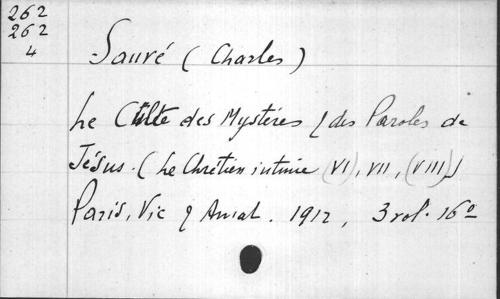 262
262
4
Sauvé (Charles)
Le Culte des Mystères / des Paroles de
Jésus. (Le Chrétien intime (VI), VII, (VIII))
Paris, Vic & Amat. 1912, 3 vol. 16º